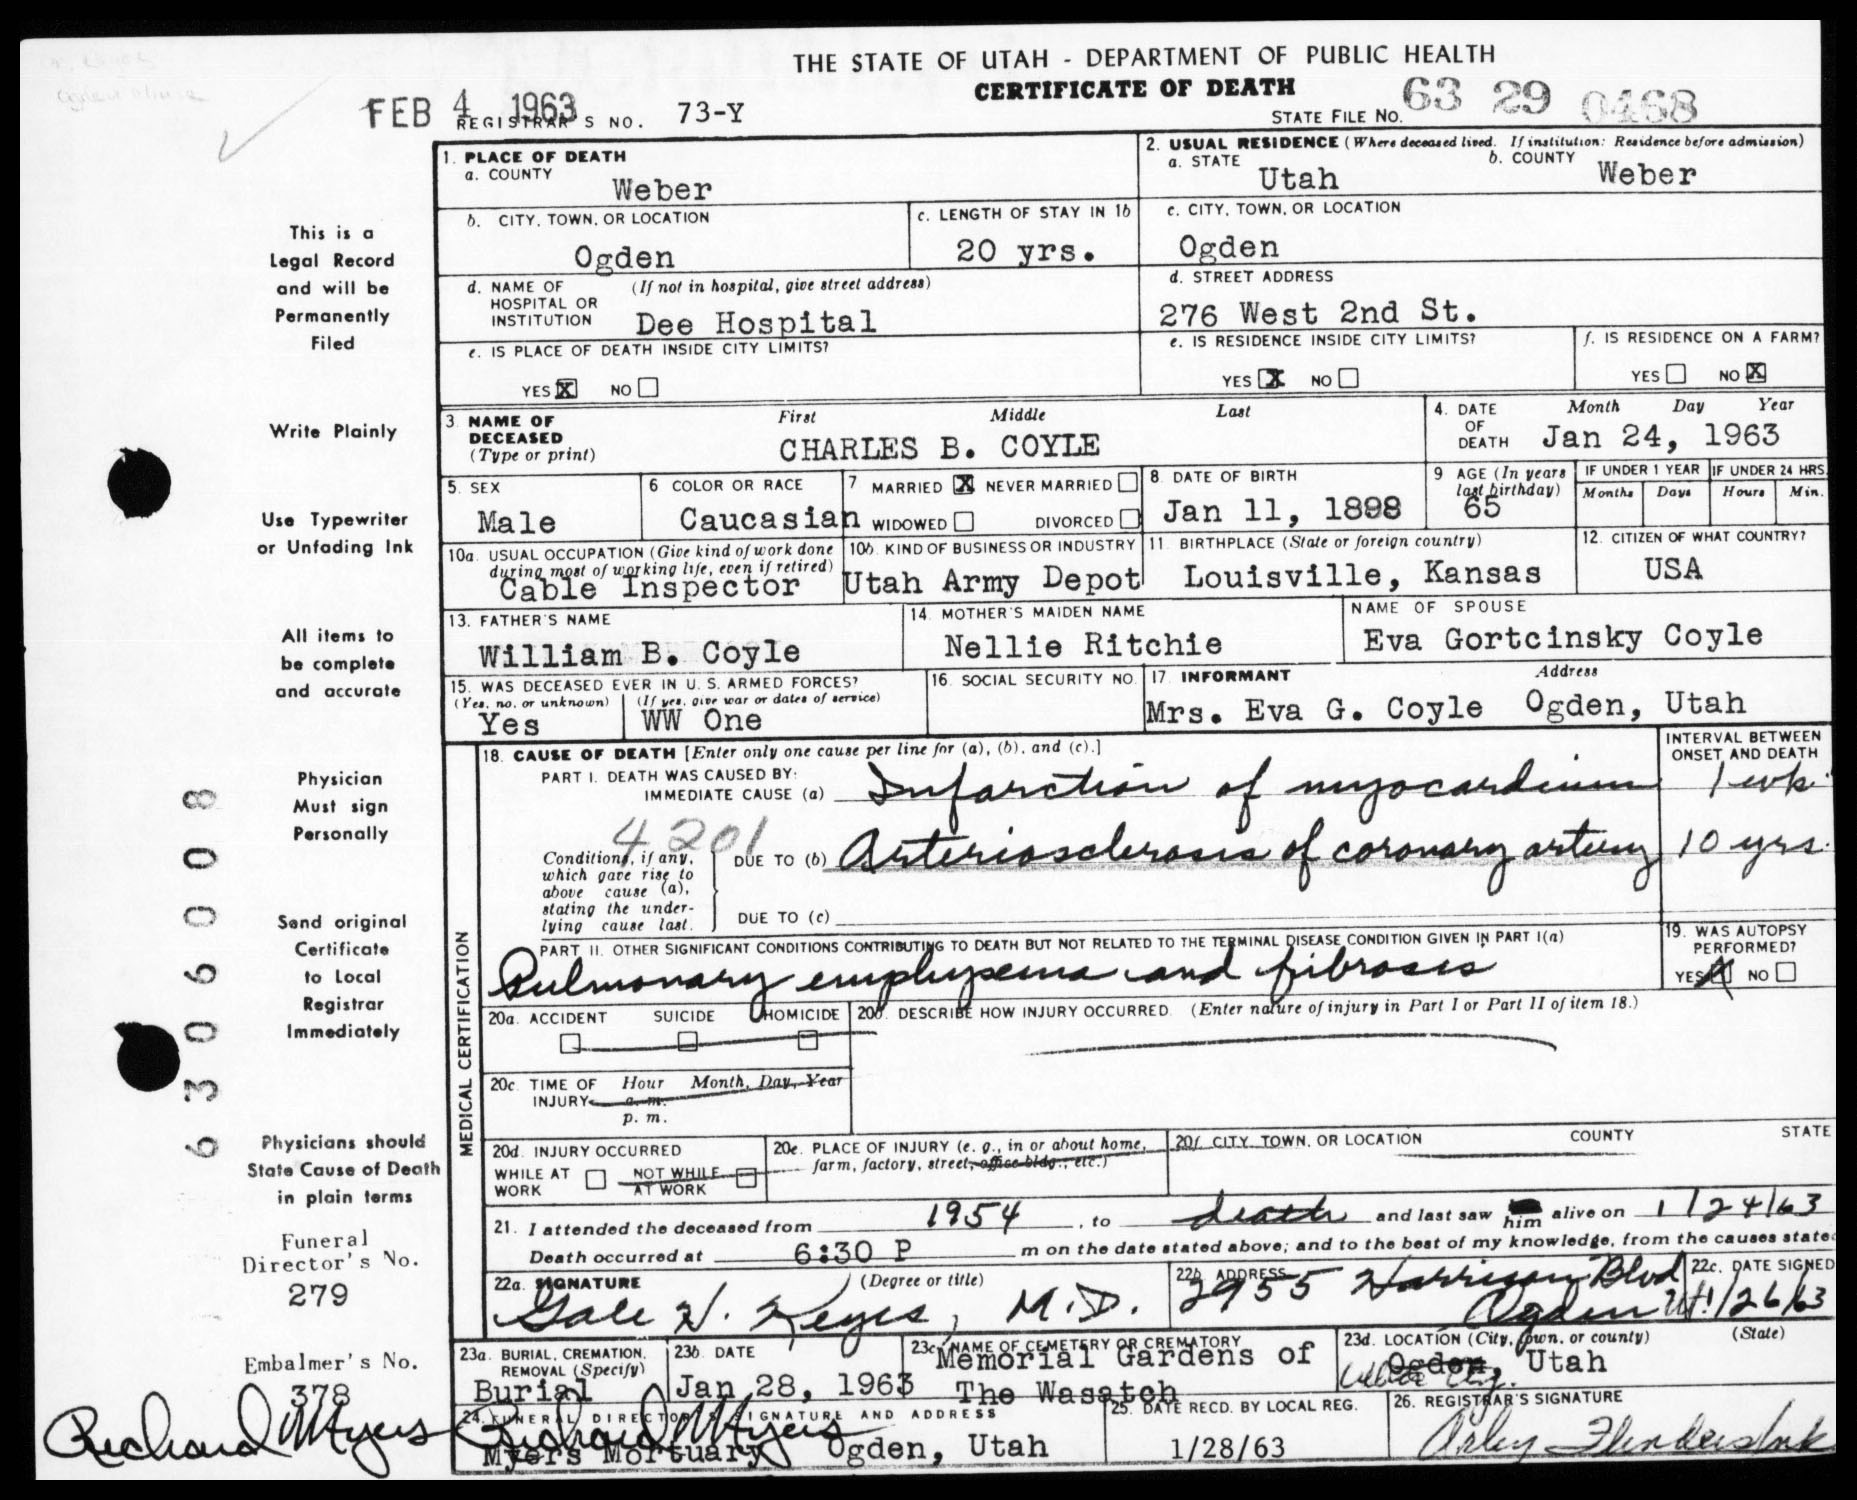 THE STATE OF UTAH - DEPARTMENT OF PUBLIC HEALTH
CERTIFICATE OF DEATH
FEB 4 1963
REGISTRAR'S NO. 73-Y
STATE FILE NO. 63 29 0468
1. PLACE OF DEATH
a. COUNTY
Weber
2. USUAL RESIDENCE (Where deceased lived. If institution: Residence before admission)
a. STATE Utah b. COUNTY Weber
b. CITY, TOWN, OR LOCATION
Ogden
c. LENGTH OF STAY IN 1b
20 yrs.
c. CITY, TOWN, OR LOCATION
Ogden
d. NAME OF HOSPITAL OR INSTITUTION (If not in hospital, give street address)
Dee Hospital
d. STREET ADDRESS
276 West 2nd St.
e. IS PLACE OF DEATH INSIDE CITY LIMITS?
YES X NO
e. IS RESIDENCE INSIDE CITY LIMITS?
YES X NO
f. IS RESIDENCE ON A FARM?
YES NO X
3. NAME OF DECEASED (Type or print)
First Middle Last
CHARLES B. COYLE
4. DATE OF DEATH
Month Day Year
Jan 24, 1963
5. SEX
Male
6 COLOR OR RACE
Caucasian
7 MARRIED X NEVER MARRIED
WIDOWED DIVORCED
8. DATE OF BIRTH
Jan 11, 1898
9 AGE (In years last birthday)
65
IF UNDER 1 YEAR
Months Days
IF UNDER 24 HRS.
Hours Min.
10a. USUAL OCCUPATION (Give kind of work done during most of working life, even if retired)
Cable Inspector
10b. KIND OF BUSINESS OR INDUSTRY
Utah Army Depot
11. BIRTHPLACE (State or foreign country)
Louisville, Kansas
12. CITIZEN OF WHAT COUNTRY?
USA
13. FATHER'S NAME
William B. Coyle
14. MOTHER'S MAIDEN NAME
Nellie Ritchie
NAME OF SPOUSE
Eva Gortcinsky Coyle
15. WAS DECEASED EVER IN U. S. ARMED FORCES?
(Yes, no, or unknown) (If yes, give war or dates of service)
Yes WW One
16. SOCIAL SECURITY NO.
17. INFORMANT Address
Mrs. Eva G. Coyle Ogden, Utah
18. CAUSE OF DEATH [Enter only one cause per line for (a), (b), and (c).]
INTERVAL BETWEEN ONSET AND DEATH
PART I. DEATH WAS CAUSED BY:
IMMEDIATE CAUSE (a) Infarction of myocardium 1 wk.
4201
Conditions, if any, which gave rise to above cause (a), stating the underlying cause last.
DUE TO (b) Arteriosclerosis of coronary artery 10 yrs.
DUE TO (c)
PART II. OTHER SIGNIFICANT CONDITIONS CONTRIBUTING TO DEATH BUT NOT RELATED TO THE TERMINAL DISEASE CONDITION GIVEN IN PART I(a)
Pulmonary emphysema and fibrosis
19. WAS AUTOPSY PERFORMED?
YES X NO
MEDICAL CERTIFICATION
20a. ACCIDENT SUICIDE HOMICIDE
20b. DESCRIBE HOW INJURY OCCURRED. (Enter nature of injury in Part I or Part II of item 18.)
20c. TIME OF INJURY Hour Month, Day, Year
a. m.
p. m.
20d. INJURY OCCURRED
WHILE AT WORK NOT WHILE AT WORK
20e. PLACE OF INJURY (e. g., in or about home, farm, factory, street, office bldg., etc.)
20f. CITY, TOWN, OR LOCATION COUNTY STATE
21. I attended the deceased from 1954, to death and last saw him alive on 1/24/63
Death occurred at 6:30 P m on the date stated above; and to the best of my knowledge, from the causes state
22a. SIGNATURE (Degree or title)
Gale H. Keyes, M.D.
22b. ADDRESS
2955 Harrison Blvd
Ogden Ut.
22c. DATE SIGNED
1/26/63
23a. BURIAL, CREMATION, REMOVAL (Specify)
Burial
23b. DATE
Jan 28, 1963
23c. NAME OF CEMETERY OR CREMATORY
Memorial Gardens of
The Wasatch
23d. LOCATION (City, town, or county) (State)
Ogden, Utah
24. FUNERAL DIRECTOR'S SIGNATURE AND ADDRESS
Richard Myers
Myers Mortuary Ogden, Utah
25. DATE RECD. BY LOCAL REG.
1/28/63
26. REGISTRAR'S SIGNATURE
This is a
Legal Record
and will be
Permanently
Filed
Write Plainly
Use Typewriter
or Unfading Ink
All items to
be complete
and accurate
Physician
Must sign
Personally
Send original
Certificate
to Local
Registrar
Immediately
Physicians should
State Cause of Death
in plain terms
Funeral
Director's No.
279
Embalmer's No.
378
Richard Myers
6306008